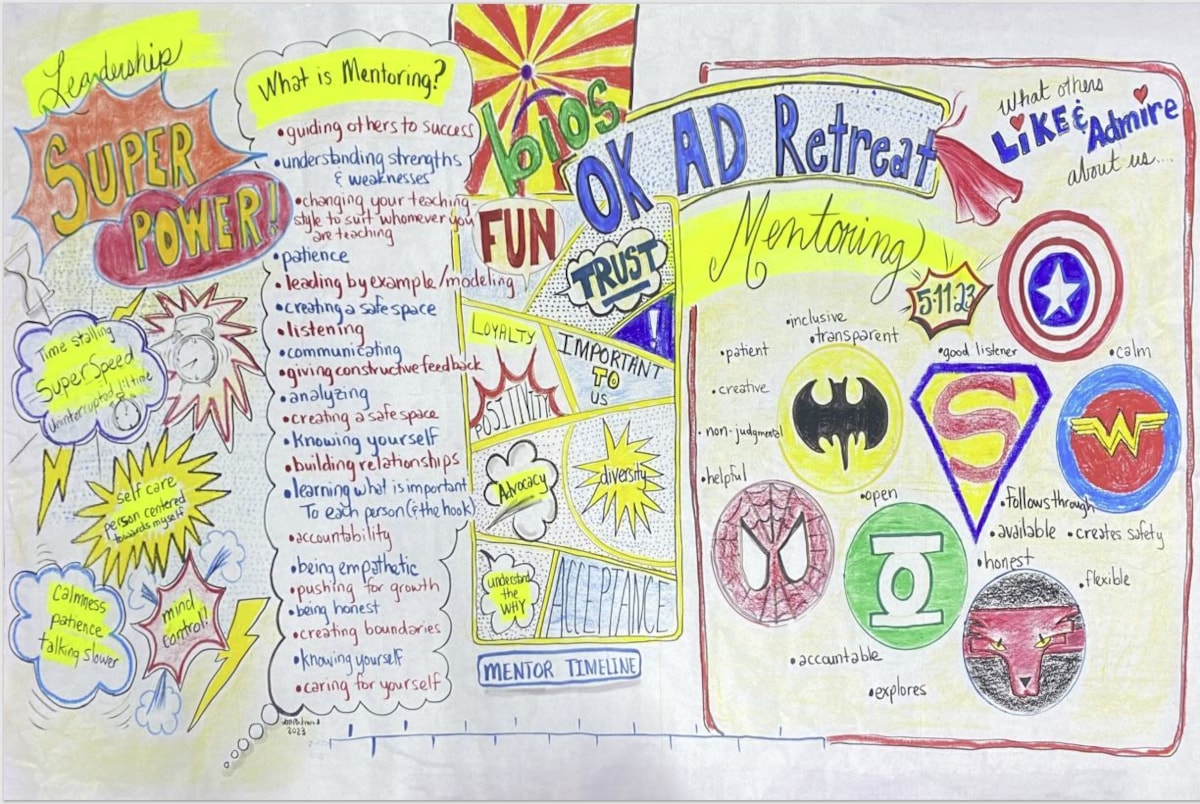 Leadership
SUPER
POWER!
Time stalling
Super Speed
uninterrupted time
self care
person centered
towards myself
Calmness
patience
talking slower
mind
control!
What is Mentoring?
•guiding others to success
•understanding strengths
& weaknesses
•changing your teaching
style to suit whomever you
are teaching
•patience
•leading by example/modeling
•creating a safe space
•listening
•communicating
•giving constructive feedback
•analyzing
•creating a safe space
•knowing yourself
•building relationships
•learning what is important
To each person (& the hook)
•accountability
•being empathetic
•pushing for growth
•being honest
•creating boundaries
•knowing yourself
•caring for yourself
2023
bios
OK AD Retreat
FUN
TRUST
!
LOYALTY
IMPORTANT
TO
US
POSITIVITY
Advocacy
diversity
understand
the
WHY
ACCEPTANCE
MENTOR TIMELINE
Mentoring
5·11·23
What others
LiKE & Admire
about us....
•inclusive
•transparent
•patient
•good listener
•calm
•creative
•non-judgmental
•helpful
S
•open
•Follows through
•available •creates safety
•honest
•flexible
•accountable
•explores